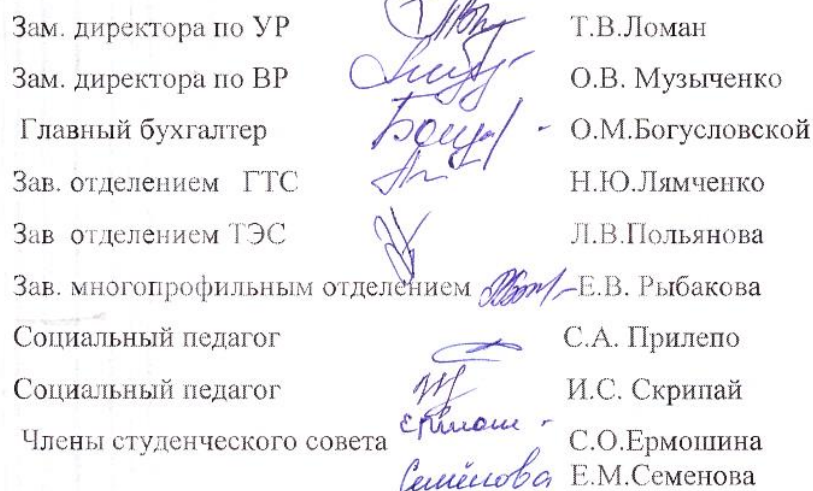 Зам. директора по УР Т.В.Ломан
Зам. директора по ВР О.В. Музыченко
Главный бухгалтер О.М.Богусловской
Зав. отделением ГТС Н.Ю.Лямченко
Зав отделением ТЭС Л.В.Польянова
Зав. многопрофильным отделением Е.В. Рыбакова
Социальный педагог С.А. Прилепо
Социальный педагог И.С. Скрипай
Члены студенческого совета С.О.Ермошина
Семёнова Е.М.Семенова